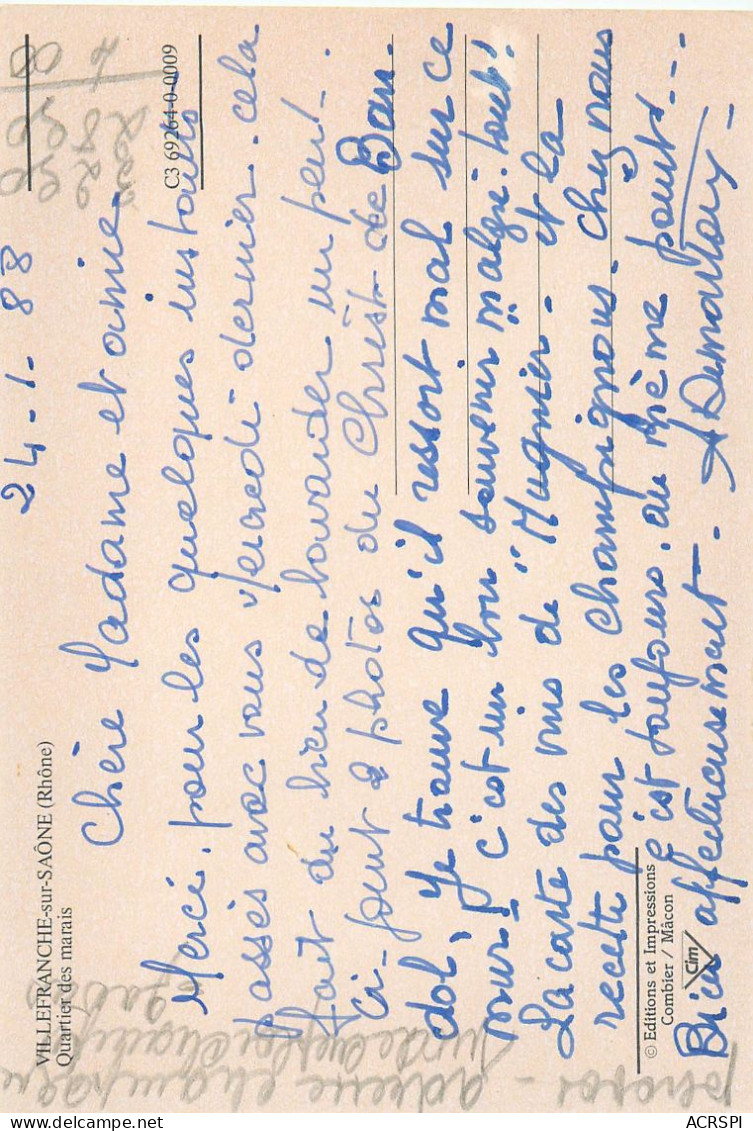 24-1-88
VILLEFRANCHE-sur-SAÔNE (Rhône)
Quartier des marais
C3 69264-0-0009
Chère Madame et amie.
Merci, pour les quelques instants
passés avec vous Mercredi dernier. cela
fait du bien de bavarder un peu!.
Ci-joint 2 photos du Christ de Ban.
dol, Je trouve qu'il ressort mal sur ce
mur! c'est un bon souvenir malgré. tout!
La carte des vins de "Mugnier - et la
recette pour les champignons. chez nous
c'est toujours. au même point...
Bien affectueusement.
© Editions et Impressions
Combier / Mâcon
Cim
photos - adresse
ACRSPI